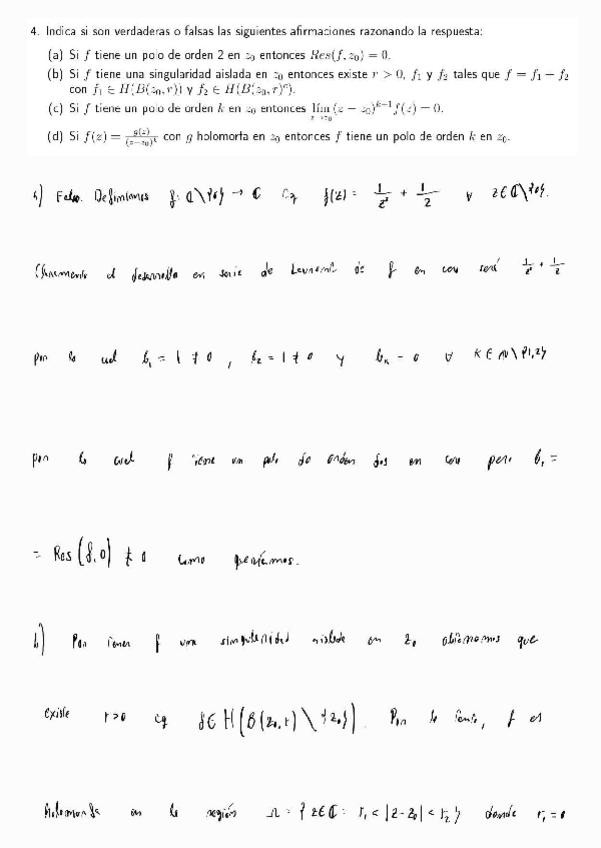 4. Indica si son verdaderas o falsas las siguientes afirmaciones razonando la respuesta:
(a) Si f tiene un polo de orden 2 en z₀ entonces Res(f, z₀) = 0.
(b) Si f tiene una singularidad aislada en z₀ entonces existe r > 0, f₁ y f₂ tales que f = f₁ − f₂
con f₁ ∈ H(B(z₀, r)) y f₂ ∈ H(B(z₀, r)ᶜ).
(c) Si f tiene un polo de orden k en z₀ entonces lím_{z→z₀} (z − z₀)^{k−1} f(z) = 0.
(d) Si f(z) = g(z)/(z−z₀)^k con g holomorfa en z₀ entonces f tiene un polo de orden k en z₀.
Falso. Definimos f: ℂ\{0} → ℂ tq f(z) = 1/z² + 1/z ∀ z ∈ ℂ\{0}.
Claramente el desarrollo en serie de Laurent de f en cero será 1/z² + 1/z
por lo cual b₁ = 1 ≠ 0, b₂ = 1 ≠ 0 y bₖ = 0 ∀ k ∈ ℕ\{1,2}
por lo cual f tiene un polo de orden dos en cero pero b₁ =
= Res(f, 0) ≠ 0 como queríamos.
b) Por tener f una singularidad aislada en z₀ obtenemos que
existe r > 0 tq f ∈ H(B(z₀, r) \ {z₀}). Por lo tanto, f es
holomorfa en la región Ω = {z ∈ ℂ: r₁ < |z − z₀| < r₂} donde r₁ = 0